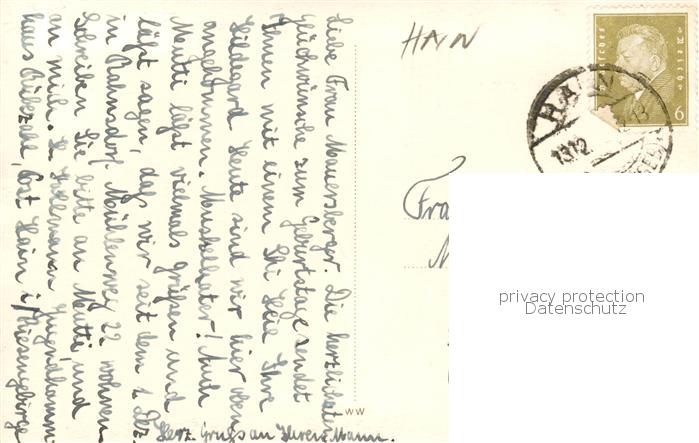 Liebe Frau Meuersberger. Die herzlichsten
Glückwünsche zum Geburtstage sendet
Ihnen mit einem Ski Heil Ihre
Hildegard. Heute sind wir hier oben
angekommen. Muskelkater! Auch
Mutti läßt vielmals grüßen und
läßt sagen, daß wir seit dem 1. Dez.
in Rahnsdorf Mühlenweg 22 wohnen.
Schreiben Sie bitte an Mutti und
an mich. H. Jugendkamm
haus Rübezahl, Post Hain i/Riesengebirge
Herz. Gruß an Ihren Mann.
HAIN
Deutsches Reich
6
HAIN
13.12
Fra
WW
privacy protection
Datenschutz